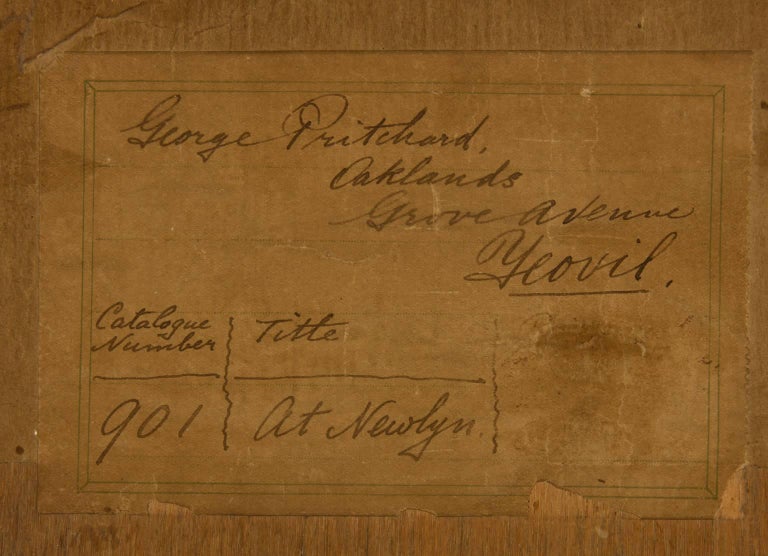 George Pritchard,
Oaklands
Grove Avenue
Yeovil.
Catalogue
Number
Title
901
At Newlyn.